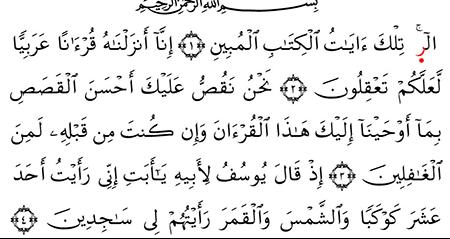 بِسْمِ اللَّهِ الرَّحْمَٰنِ الرَّحِيمِ
الٓر ۚ تِلْكَ ءَايَٰتُ الْكِتَٰبِ الْمُبِينِ ﴿١﴾ إِنَّآ أَنزَلْنَٰهُ قُرْءَٰنًا عَرَبِيًّا
لَّعَلَّكُمْ تَعْقِلُونَ ﴿٢﴾ نَحْنُ نَقُصُّ عَلَيْكَ أَحْسَنَ الْقَصَصِ
بِمَآ أَوْحَيْنَآ إِلَيْكَ هَٰذَا الْقُرْءَانَ وَإِن كُنتَ مِن قَبْلِهِۦ لَمِنَ
الْغَٰفِلِينَ ﴿٣﴾ إِذْ قَالَ يُوسُفُ لِأَبِيهِ يَٰٓأَبَتِ إِنِّى رَأَيْتُ أَحَدَ
عَشَرَ كَوْكَبًا وَالشَّمْسَ وَالْقَمَرَ رَأَيْتُهُمْ لِى سَٰجِدِينَ ﴿٤﴾